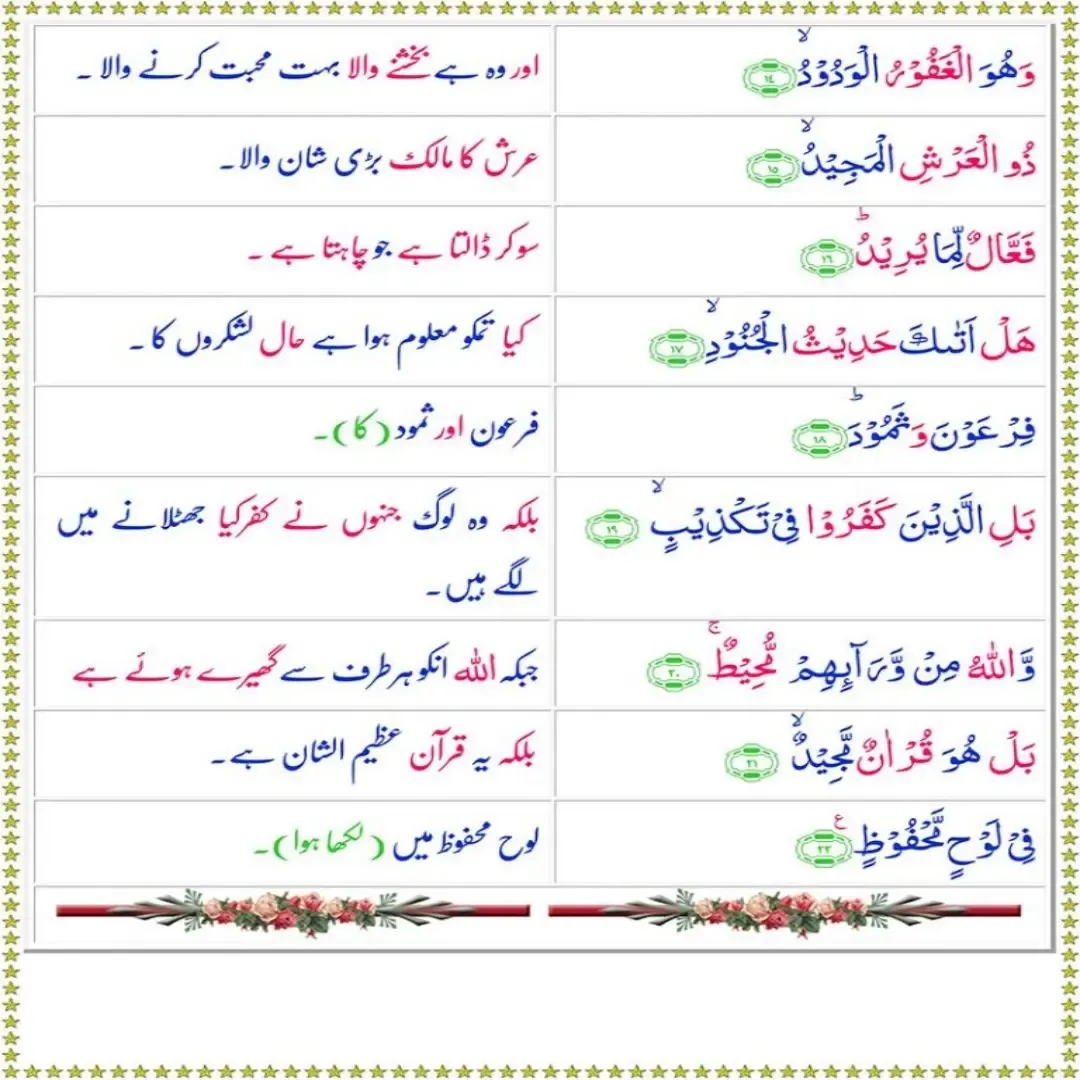 وَهُوَ الْغَفُوْرُ الْوَدُوْدُۙ ﴿۱۴﴾
اور وہ ہے بخشنے والا بہت محبت کرنے والا ۔
ذُو الْعَرْشِ الْمَجِيْدُۙ ﴿۱۵﴾
عرش کا مالک بڑی شان والا۔
فَعَّالٌ لِّمَا يُرِيْدُؕ ﴿۱۶﴾
سو کر ڈالتا ہے جو چاہتا ہے ۔
هَلْ اَتٰٮكَ حَدِيْثُ الْجُنُوْدِۙ ﴿۱۷﴾
کیا تمکو معلوم ہوا ہے حال لشکروں کا ۔
فِرْعَوْنَ وَثَمُوْدَؕ ﴿۱۸﴾
فرعون اور ثمود (کا)۔
بَلِ الَّذِيْنَ كَفَرُوْا فِىْ تَكْذِيْبٍۙ ﴿۱۹﴾
بلکہ وہ لوگ جنہوں نے کفر کیا جھٹلانے میں
لگے ہیں۔
وَّاللّٰهُ مِنْ وَّرَآٮِٕهِمْ مُّحِيْطٌۚ ﴿۲۰﴾
جبکہ اللہ انکو ہر طرف سے گھیرے ہوئے ہے
بَلْ هُوَ قُرْاٰنٌ مَّجِيْدٌۙ ﴿۲۱﴾
بلکہ یہ قرآن عظیم الشان ہے۔
فِىْ لَوْحٍ مَّحْفُوْظٍ ﴿۲۲﴾ ع
لوح محفوظ میں (لکھا ہوا)۔